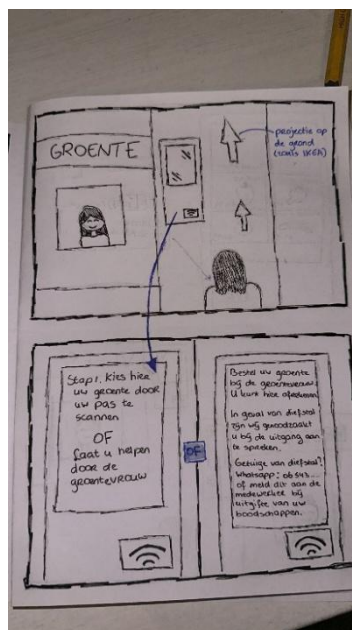 GROENTE
projectie op
de grond
(zoals IKEA)
Stap 1. Kies hier
uw groente door
uw pas te
scannen
OF
Laat u helpen
door de
groentevrouw
OF
Bestel uw groente
bij de groentevrouw.
U kunt hier afrekenen.
In geval van diefstal
zijn wij genoodzaakt
u bij de uitgang aan
te spreken.
Getuige van diefstal?
Whatsapp: 06 543...
of meld dit aan de
medewerker bij
uitgifte van uw
boodschappen.